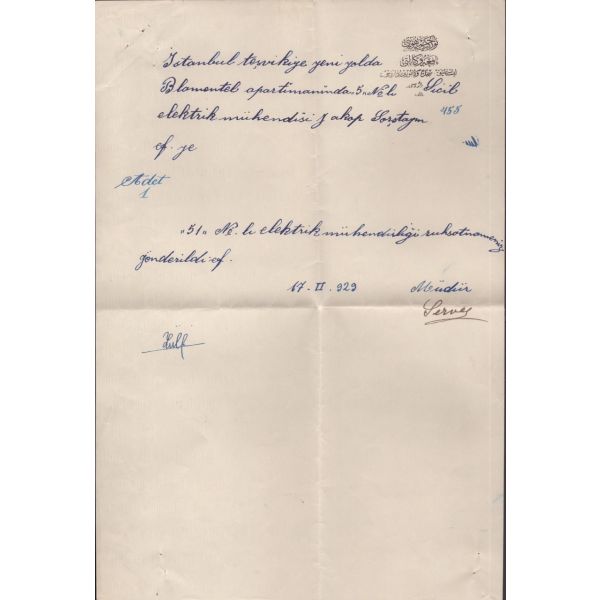 İstanbul teşvikiye yeni yolda
Blomentel apartimanında "5" No lı Sicil
elektrik mühendisi Jakop Sorştayn 458
ef. ye
Adet
1
"51" No. lı elektrik mühendisliği ruhsatnameniz
gönderildi ef.
17. II. 929 Müdür